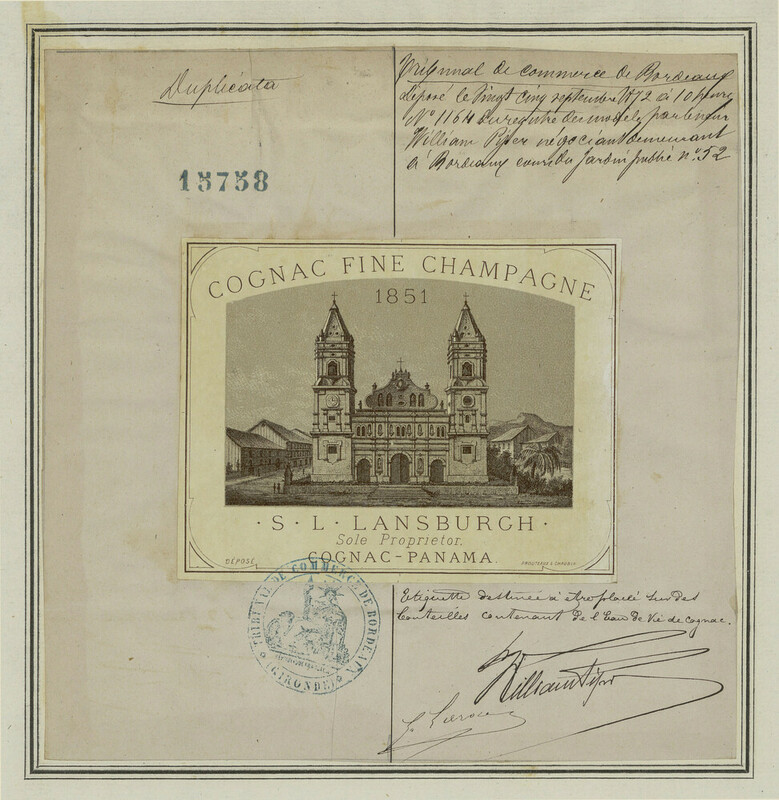 Duplicata
Tribunal de commerce de Bordeaux
Déposé le Vingt cinq septembre 1872 à 10 heures
N° 1164 du registre des models par Monsieur
William Piper négociant demeurant
à Bordeaux cours du Jardin public n° 52
15758
COGNAC FINE CHAMPAGNE
1851
· S · L · LANSBURGH ·
Sole Proprietor.
COGNAC-PANAMA.
DÉPOSÉ
TRIBUNAL DE COMMERCE DE BORDEAUX
(GIRONDE)
Etiquette destinée à être placée sur des
bouteilles contenant de l'Eau de Vie de Cognac.
William Piper